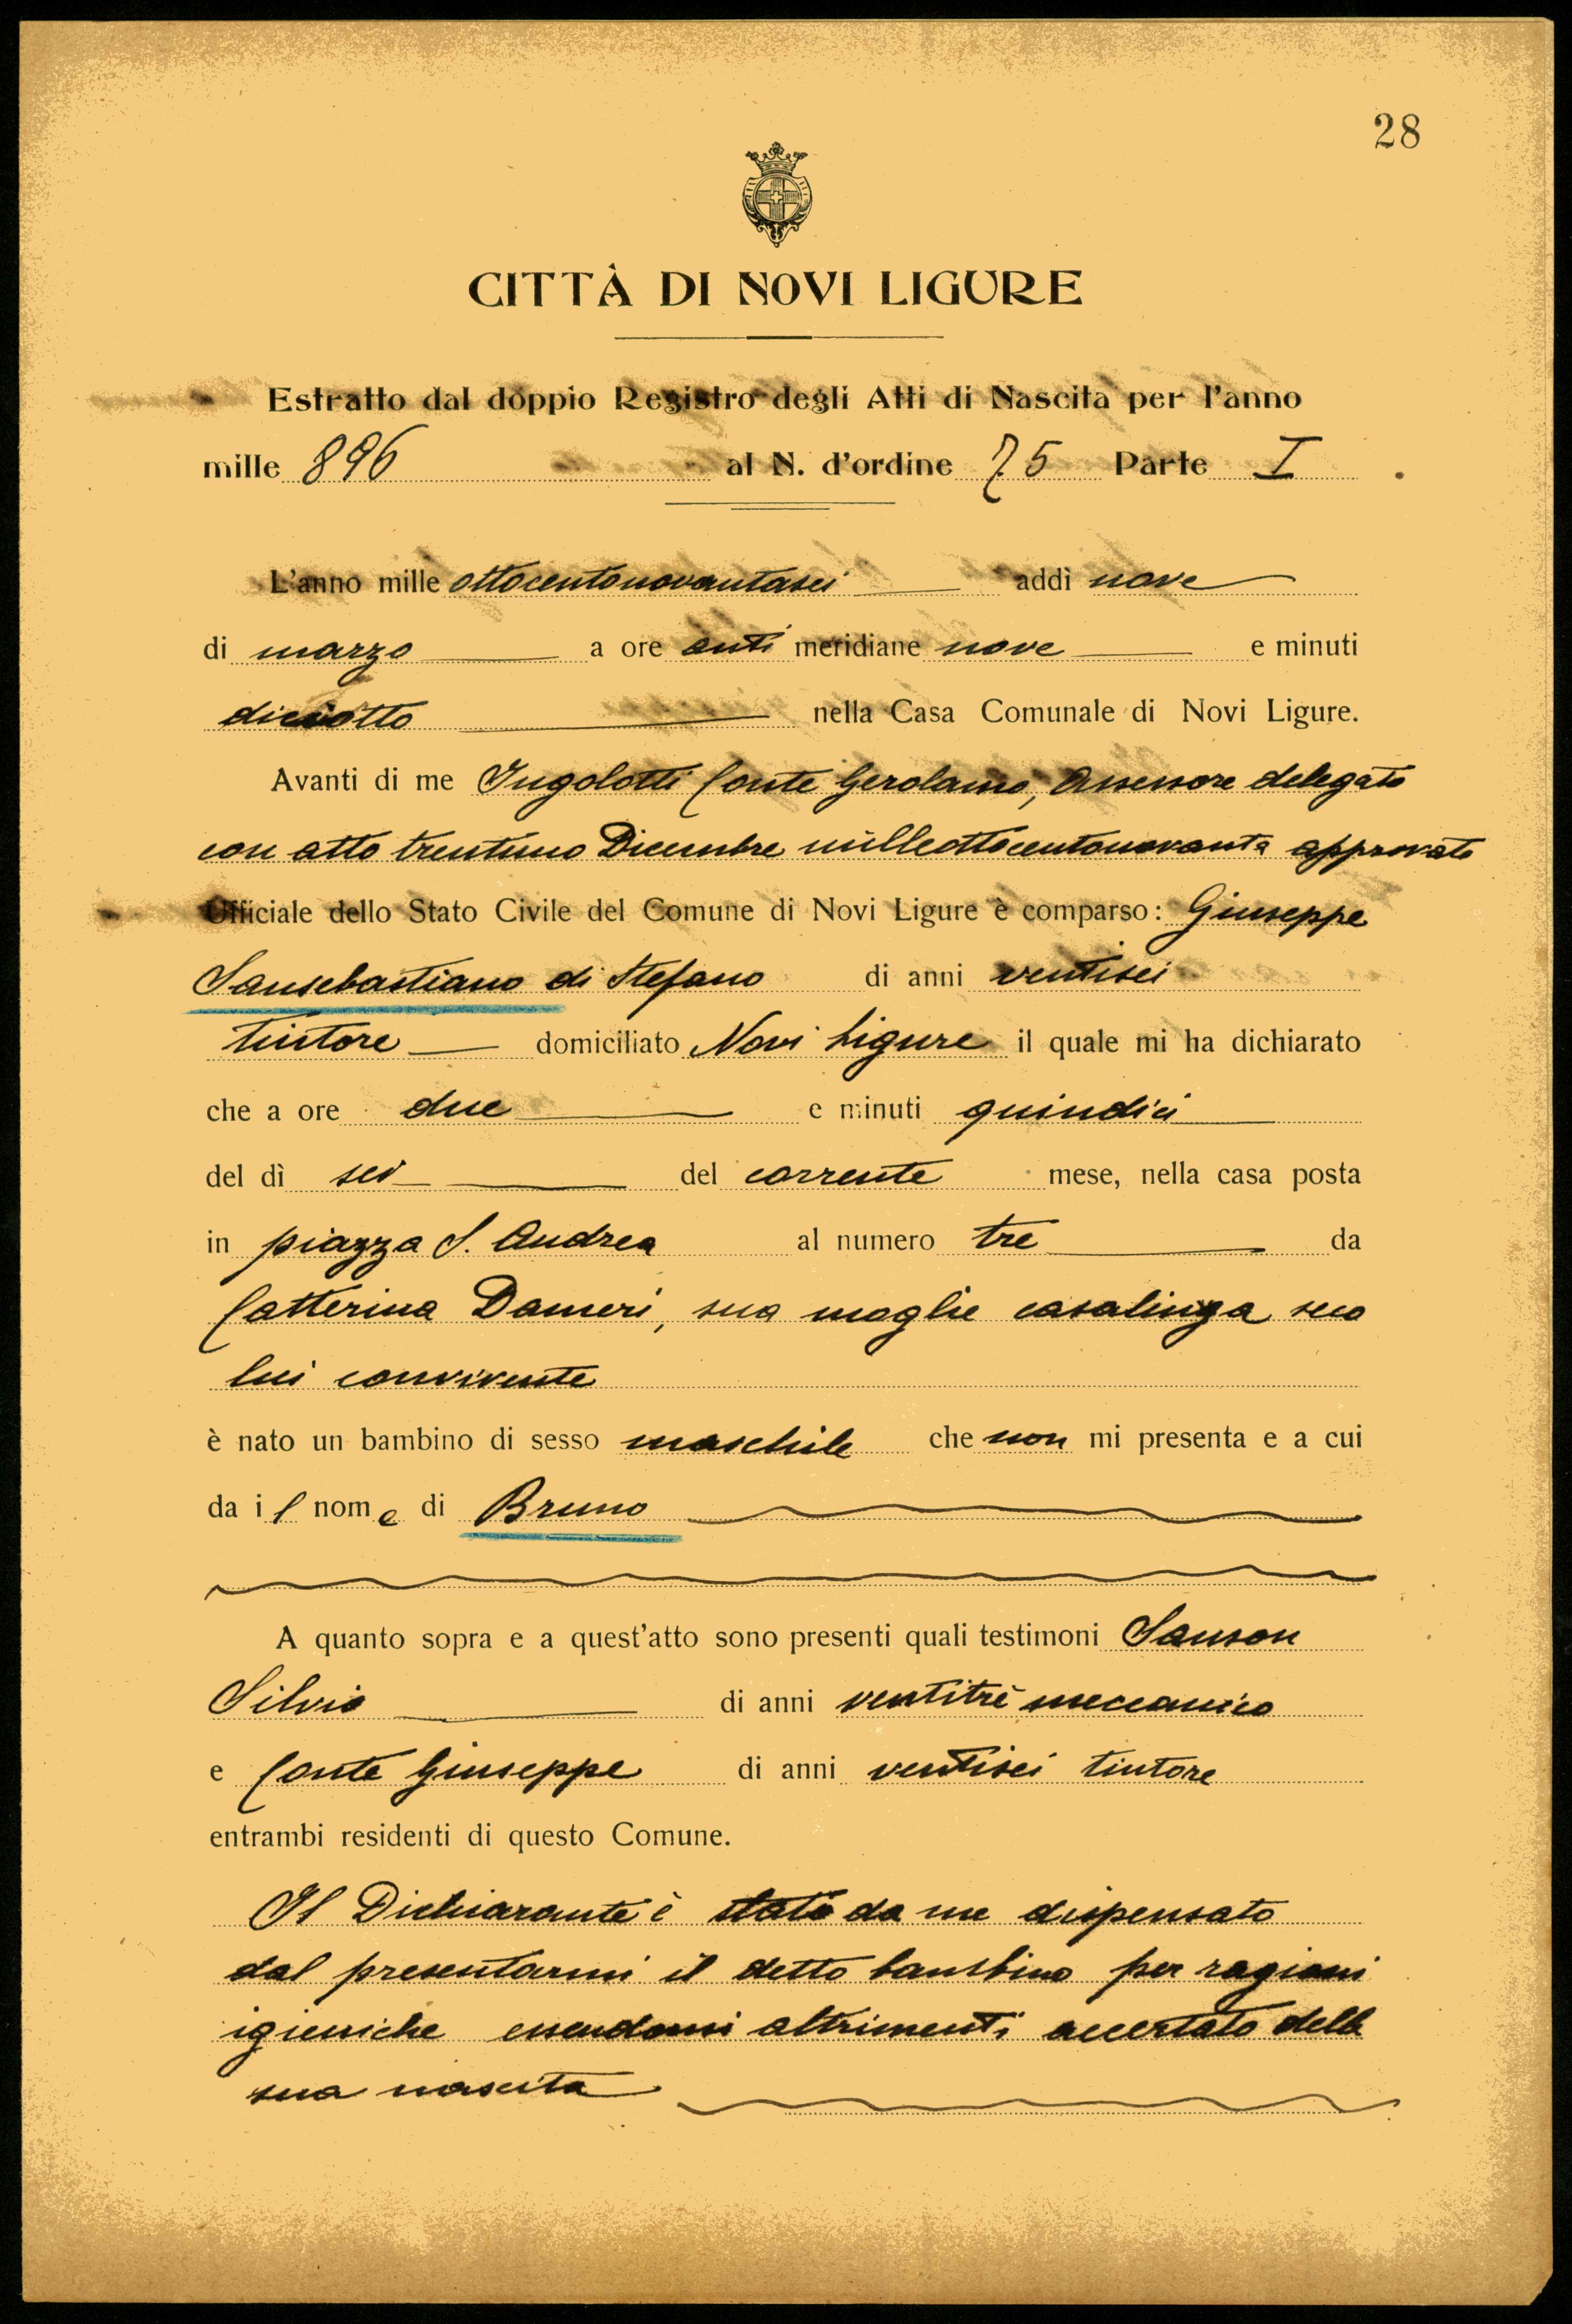 28
CITTÀ DI NOVI LIGURE
Estratto dal doppio Registro degli Atti di Nascita per l'anno
mille 896 al N. d'ordine 75 Parte I
L'anno mille ottocentonovantasei addì nove
di marzo a ore anti meridiane nove e minuti
diciotto nella Casa Comunale di Novi Ligure.
Avanti di me Ingolotti Conte Gerolamo, Assessore delegato
con atto trentuno Dicembre milleottocentonovanta approvato
Ufficiale dello Stato Civile del Comune di Novi Ligure è comparso: Giuseppe
Sansebastiano di Stefano di anni ventisei
tintore domiciliato Novi Ligure il quale mi ha dichiarato
che a ore due e minuti quindici
del dì sei del corrente mese, nella casa posta
in piazza S. Andrea al numero tre da
Catterina Dameri, sua moglie casalinga seco
lui convivente
è nato un bambino di sesso maschile che non mi presenta e a cui
da il nome di Bruno
A quanto sopra e a quest'atto sono presenti quali testimoni Sanson
Silvio di anni ventitrè meccanico
e Conte Giuseppe di anni ventisei tintore
entrambi residenti di questo Comune.
Il Dichiarante è stato da me dispensato
dal presentarmi il detto bambino per ragioni
igieniche essendomi altrimenti accertato della
sua nascita